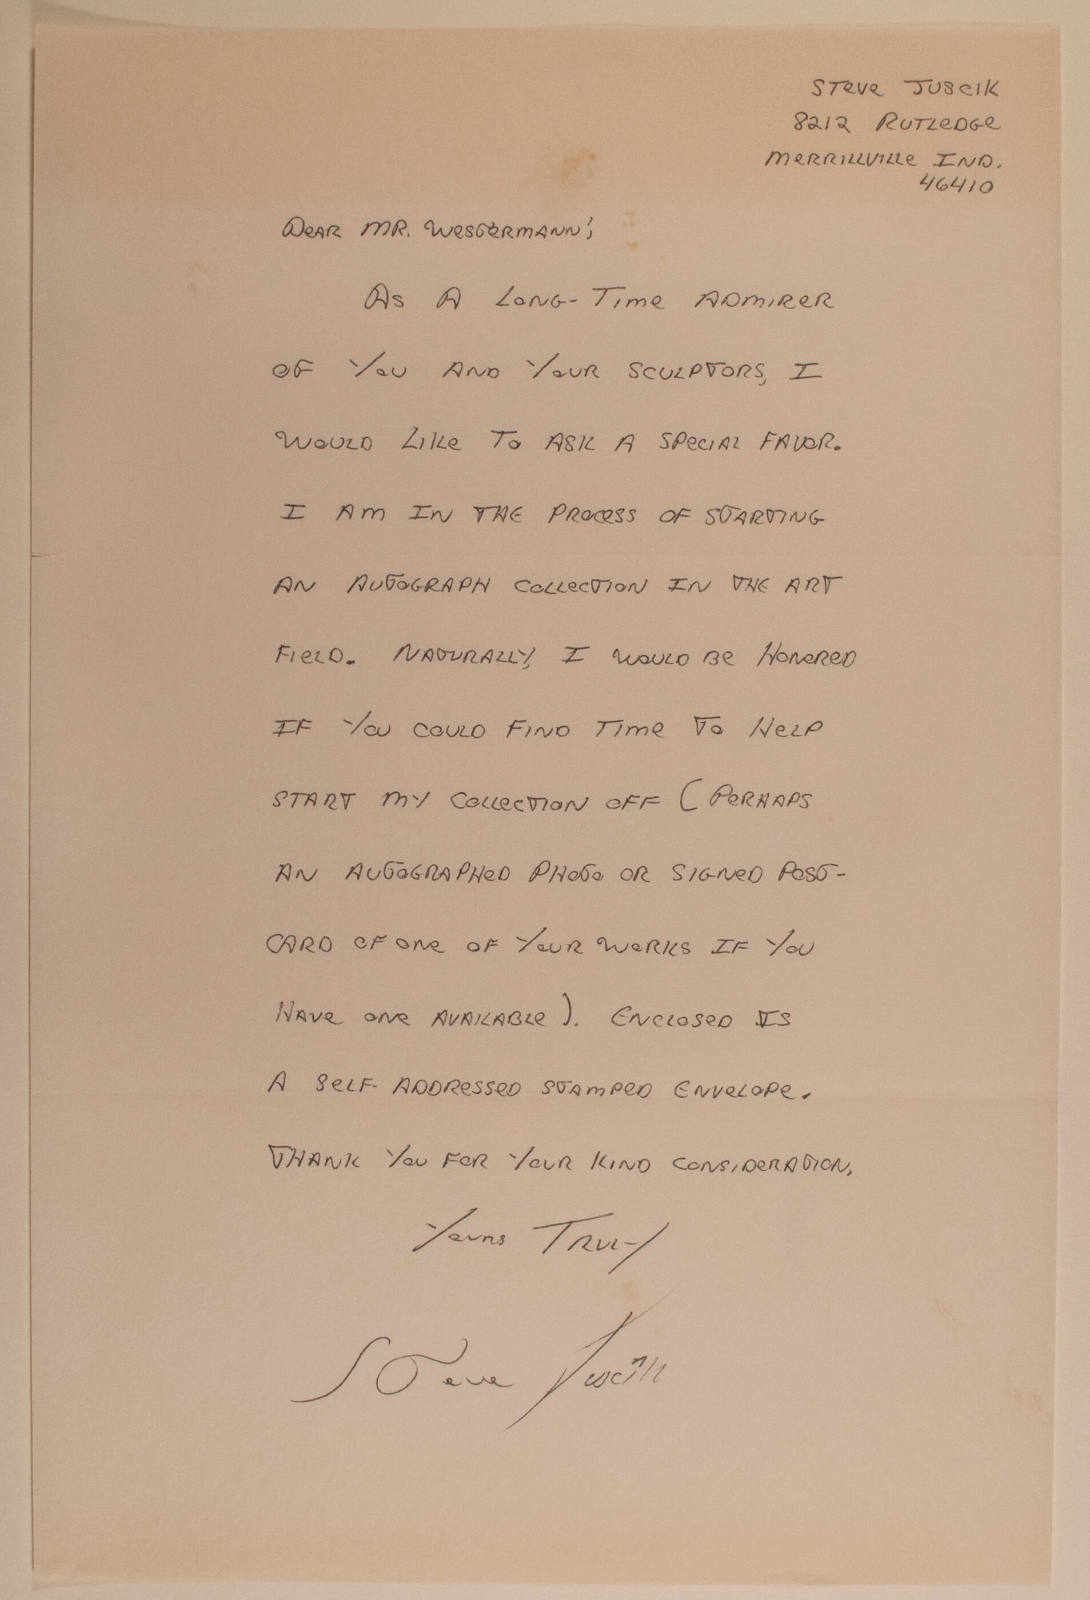 Steve Juscik
8212 Rutledge
Merrillville Ind.
46410
Dear Mr. Westermann;
As a long-time admirer
of you and your sculptors, I
would like to ask a special favor.
I am in the process of starting
an autograph collection in the art
field. Naturally, I would be honored
if you could find time to help
start my collection off (perhaps
an autographed photo or signed post-
card of one of your works if you
have one available). Enclosed is
a self-addressed stamped envelope.
Thank you for your kind consideration,
Yours Truly
Steve Juscik